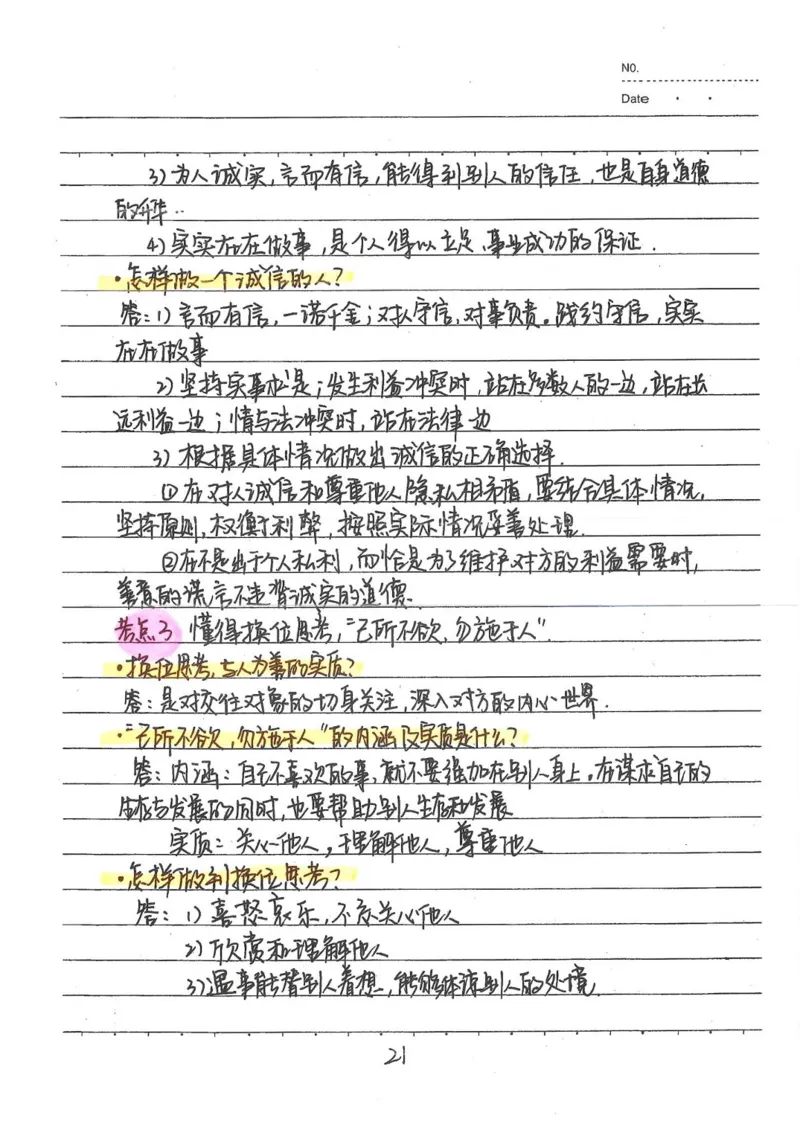 NO.
Date · ·
3)为人诚实,言而有信,能得到别人的信任,也是自身道德
的升华..
4)实实在在做事,是个人得以立足、事业成功的保证.
·怎样做一个诚信的人?
答:1)言而有信,一诺千金;对人守信,对事负责。践约守信,实实
在在做事
2)坚持实事求是;发生利益冲突时,站在多数人的一边,站在长
远利益一边;情与法冲突时,站在法律一边
3)根据具体情况做出诚信的正确选择.
①在对人诚信和尊重他人隐私相矛盾,要结合具体情况,
坚持原则,权衡利弊,按照实际情况妥善处理.
②在不是出于个人私利,而恰是为了维护对方的利益需要时,
善意的谎言不违背诚实的道德.
考点3 懂得换位思考,"己所不欲,勿施于人".
·换位思考,与人为善的实质?
答:是对交往对象的切身关注,深入对方的内心世界.
·"己所不欲,勿施于人"的内涵及实质是什么?
答:内涵:自己不喜欢的事,就不要强加在别人身上。在谋求自己的
生存与发展的同时,也要帮助别人生存和发展
实质:关心他人,理解他人,尊重他人
·怎样做到换位思考?
答:1)喜怒哀乐,不忘关心他人
2)欣赏和理解他人
3)遇事能替别人着想,能够体谅别人的处境.
21